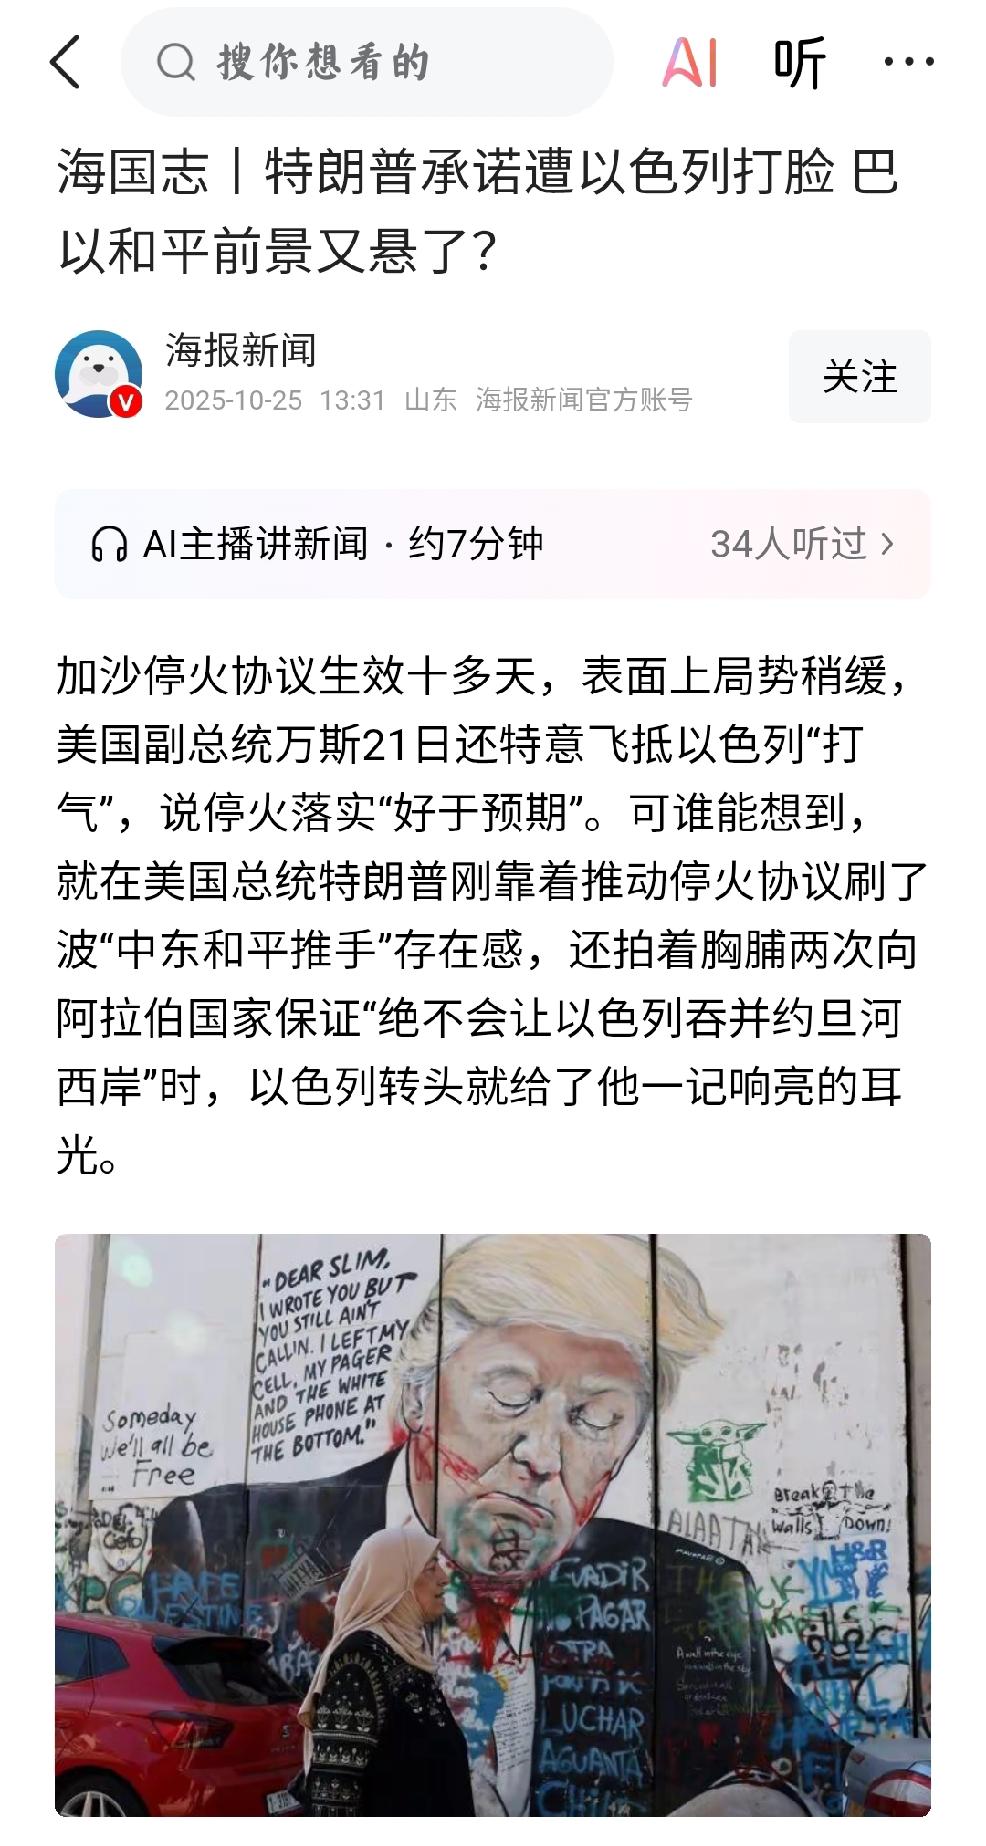 搜你想看的
AI 听 …
海国志｜特朗普承诺遭以色列打脸 巴
以和平前景又悬了？
海报新闻
2025-10-25 13:31 山东 海报新闻官方账号
关注
AI主播讲新闻 · 约7分钟
34人听过
加沙停火协议生效十多天，表面上局势稍缓，
美国副总统万斯21日还特意飞抵以色列“打
气”，说停火落实“好于预期”。可谁能想到，
就在美国总统特朗普刚靠着推动停火协议刷了
波“中东和平推手”存在感，还拍着胸脯两次向
阿拉伯国家保证“绝不会让以色列吞并约旦河
西岸”时，以色列转头就给了他一记响亮的耳
光。
"DEAR SLIM,
I WROTE YOU BUT
YOU STILL AIN'T
CALLIN. I LEFT MY
CELL, MY PAGER
AND THE WHITE
HOUSE PHONE AT
THE BOTTOM."
Someday
we'll all be
Free
Break the
Walls Down!
H&R
EVADIR
PAGAR
LUCHAR
AGUANTA